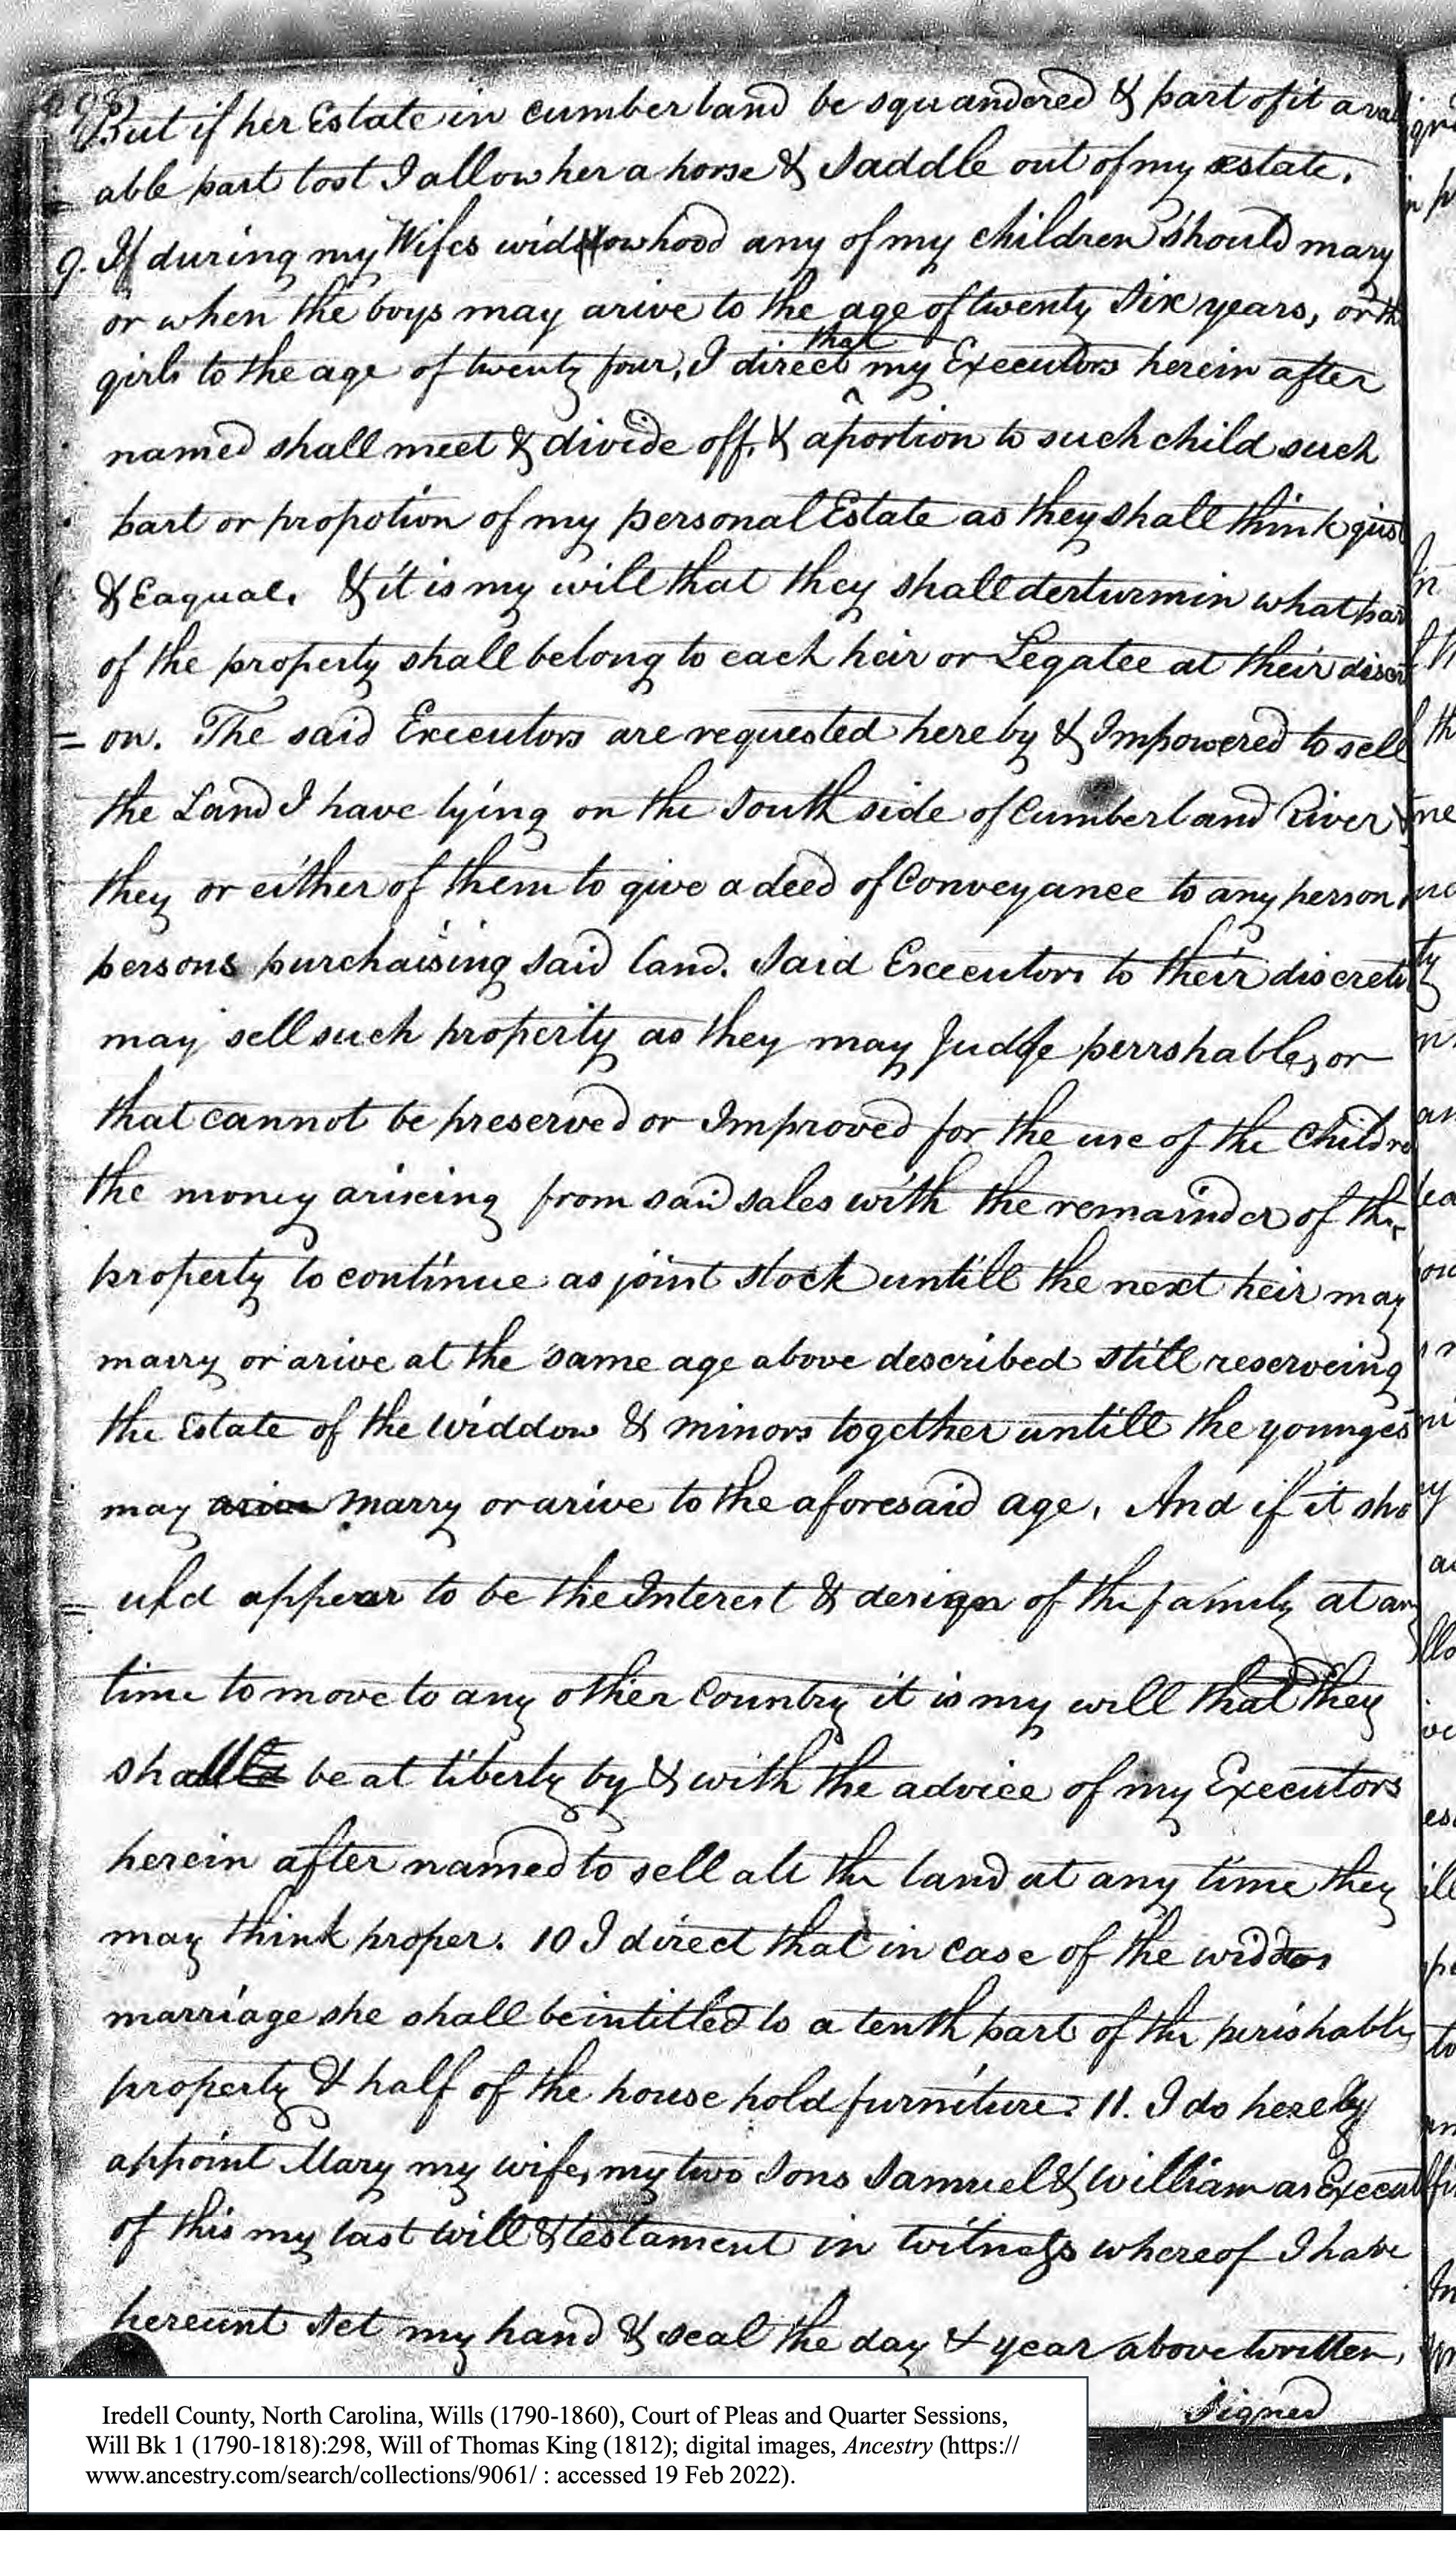 298)
But if her Estate in Cumberland be squandered & part of it a valu
able part lost I allow her a horse & Saddle out of my estate.
9. If during my Wifes widdowhood any of my children should mary
or when the boys may arive to the age of twenty six years, or th
that
girls to the age of twenty four, I direct ^ my Executors herein after
named shall meet & divide off, & aportion to such child such
part or propotion of my personal Estate as they shall think gust
& Eaqual. & it is my will that they shall derturmin what par
of the property shall belong to each heir or Legatee at their discr
= on. The said Executors are requested hereby & Impowered to sell
the Land I have lying on the South side of Cumberland River &
they or either of them to give a deed of Conveyance to any person
persons purchaising said land. Said Executors to their discreti
may sell such property as they may Judge perrshable, or
that cannot be preserved or Improved for the use of the Childre
the money ariseing from said sales with the remainder of the
property to continue as joint stock untill the next heir may
marry or arive at the same age above described still reserveing
the Estate of the widdow & minors together untill the younges
may arive marry or arive to the aforesaid age. And if it sho
= uld appear to be the Interest & design of the family at any
time to move to any other Country it is my will that they
shall be at liberty by & with the advice of my Executors
herein after named to sell all the land at any time they
may think proper. 10 I direct that in case of the widdos
marriage she shall be intitled to a tenth part of the perishable
property & half of the house hold furniture. 11. I do hereby
appoint Mary my wife, my two Sons Samuel & William as Execut
of this my last will & testament in witness whereof I have
hereunt set my hand & seal the day & year above written,
Signed
Iredell County, North Carolina, Wills (1790-1860), Court of Pleas and Quarter Sessions,
Will Bk 1 (1790-1818):298, Will of Thomas King (1812); digital images, Ancestry (https://
www.ancestry.com/search/collections/9061/ : accessed 19 Feb 2022).